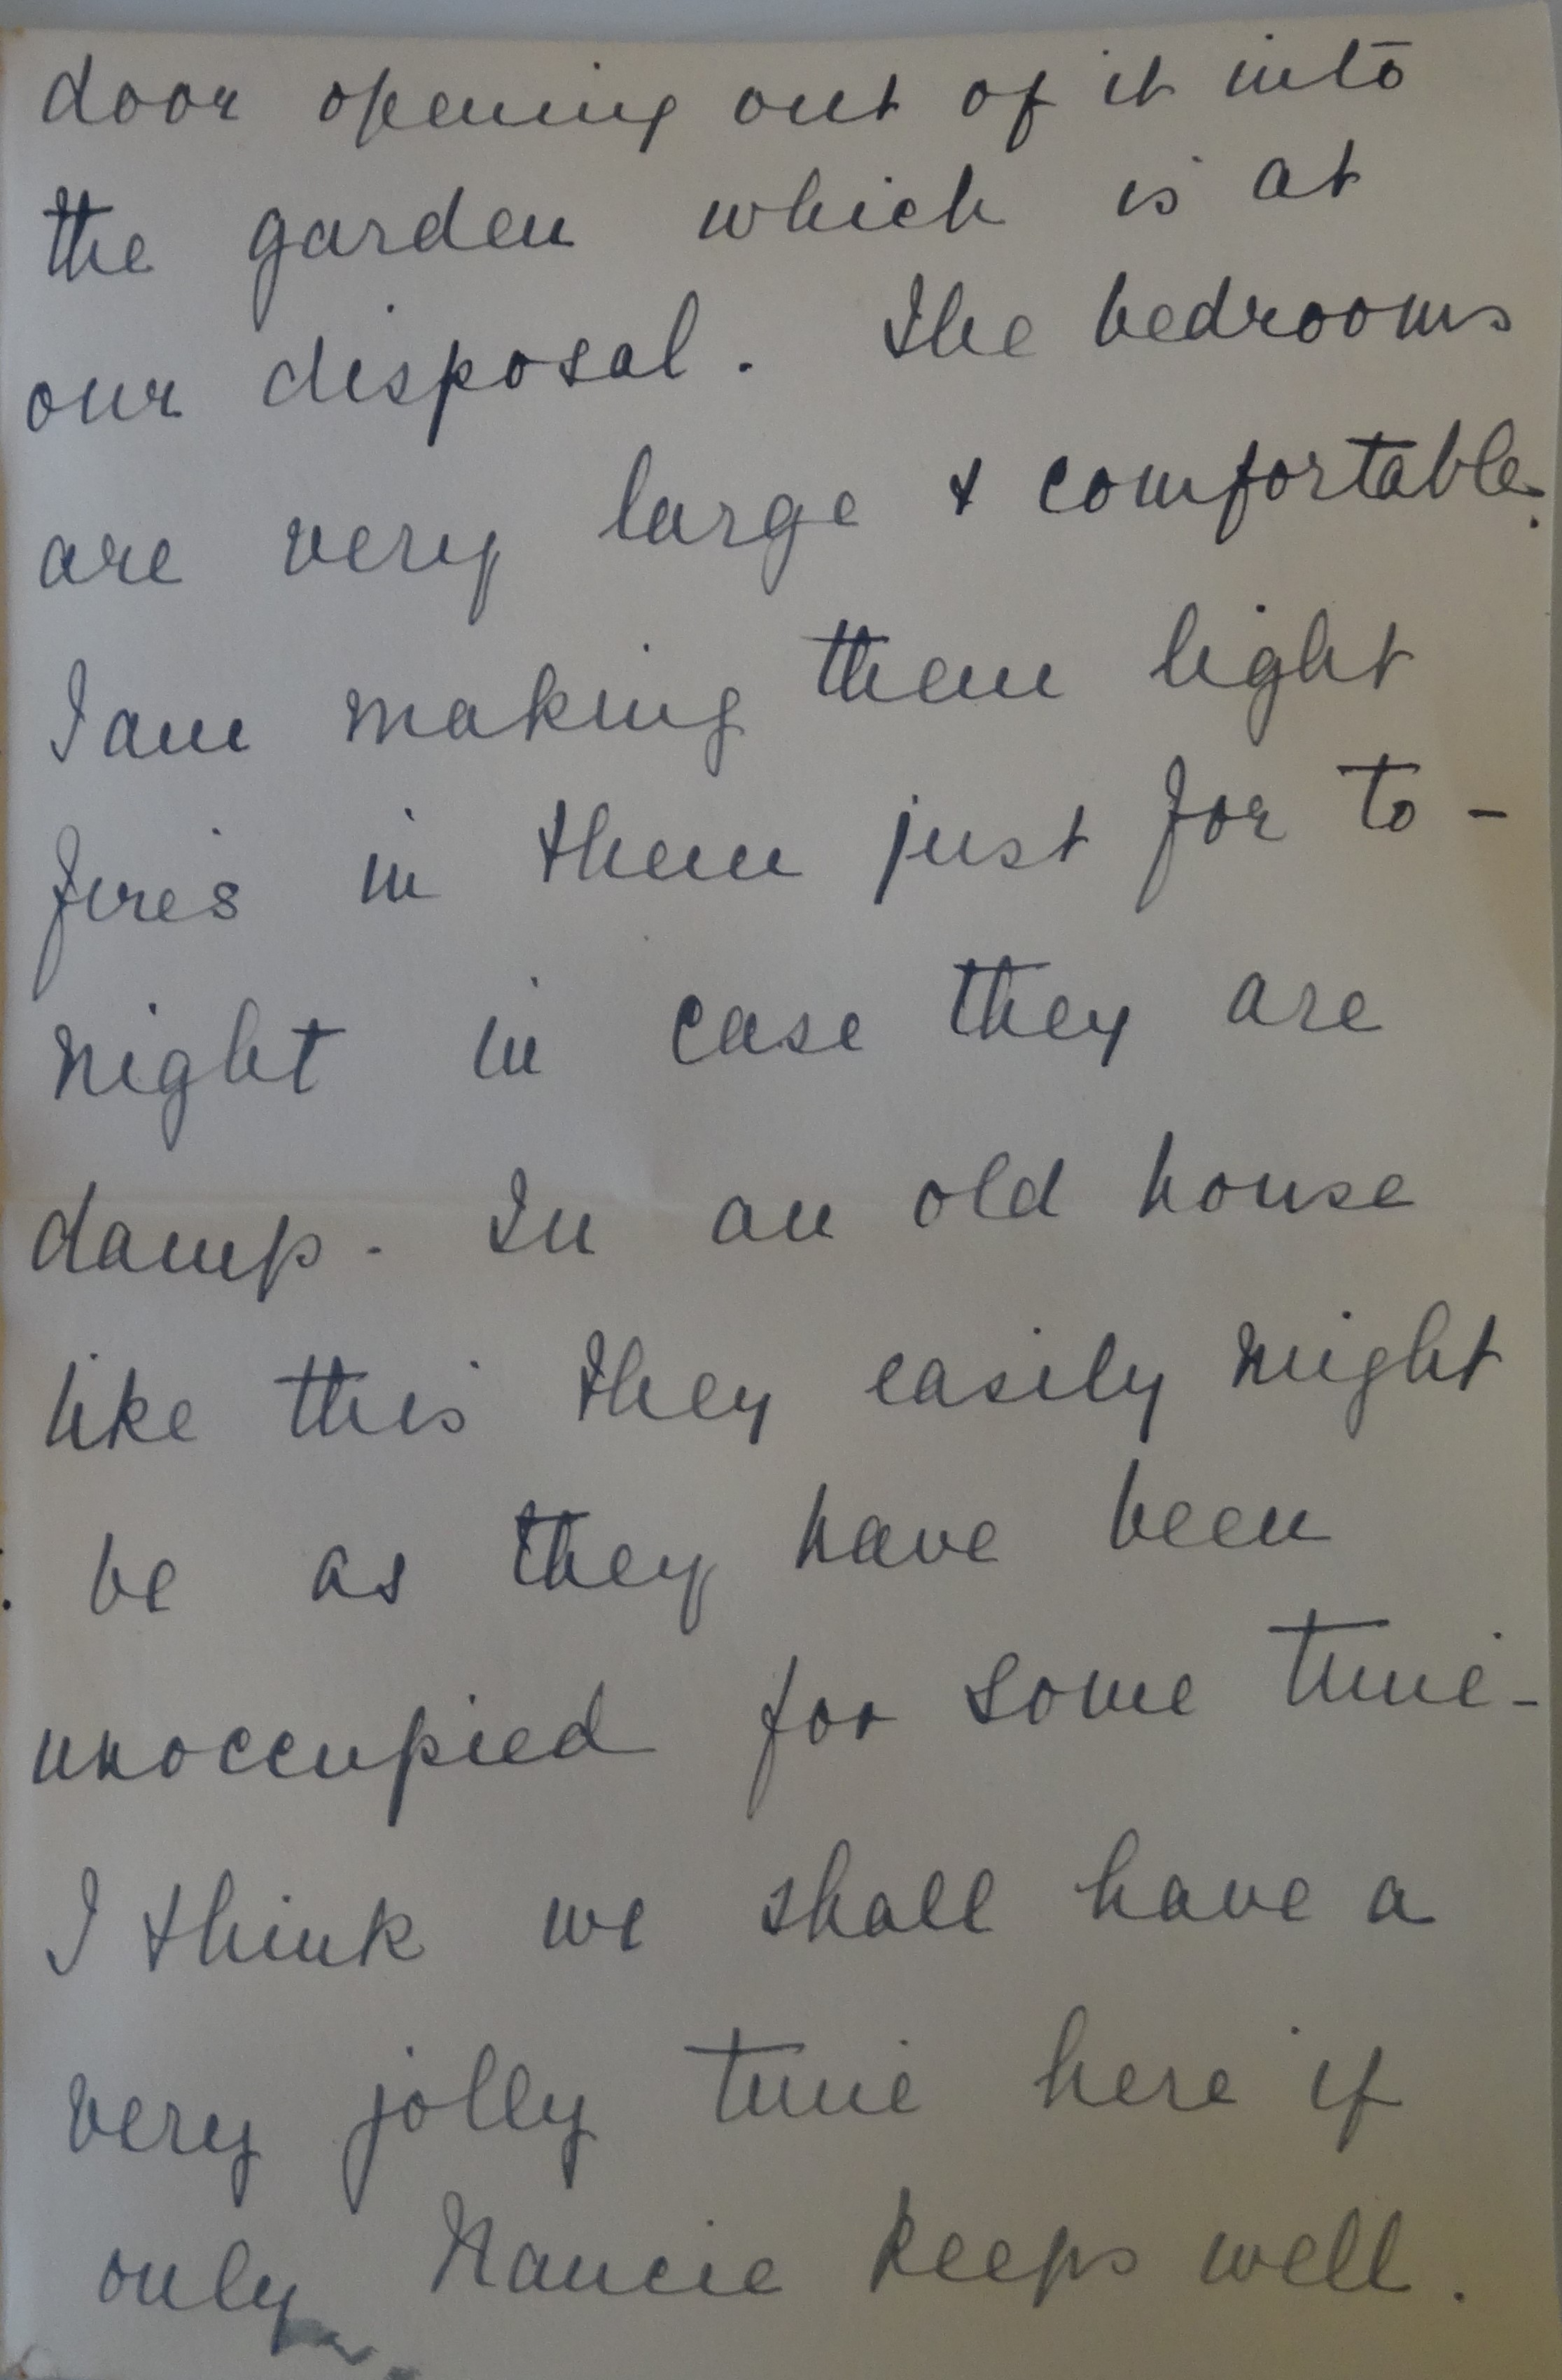 door opening out of it into
the garden which is at
our disposal. The bedrooms
are very large & comfortable.
I am making them light
fires in them just for to-
night in case they are
damp. In an old house
like this they easily might
be as they have been
unoccupied for some time-
I think we shall have a
very jolly time here if
only Nancie keeps well.